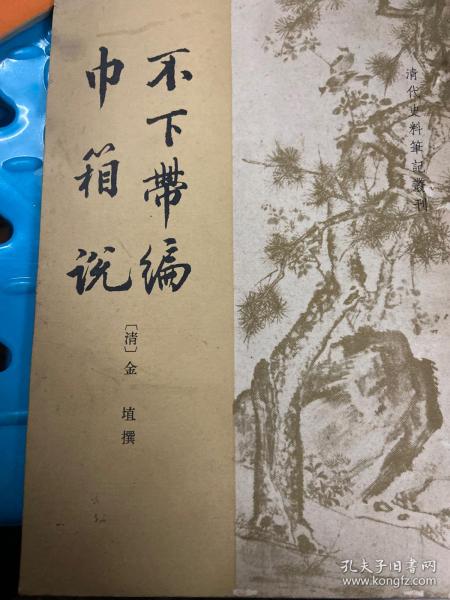 清代史料筆記叢刊
不下帶編
巾箱説
〔清〕金埴撰
孔夫子旧书网
www.kongfz.com